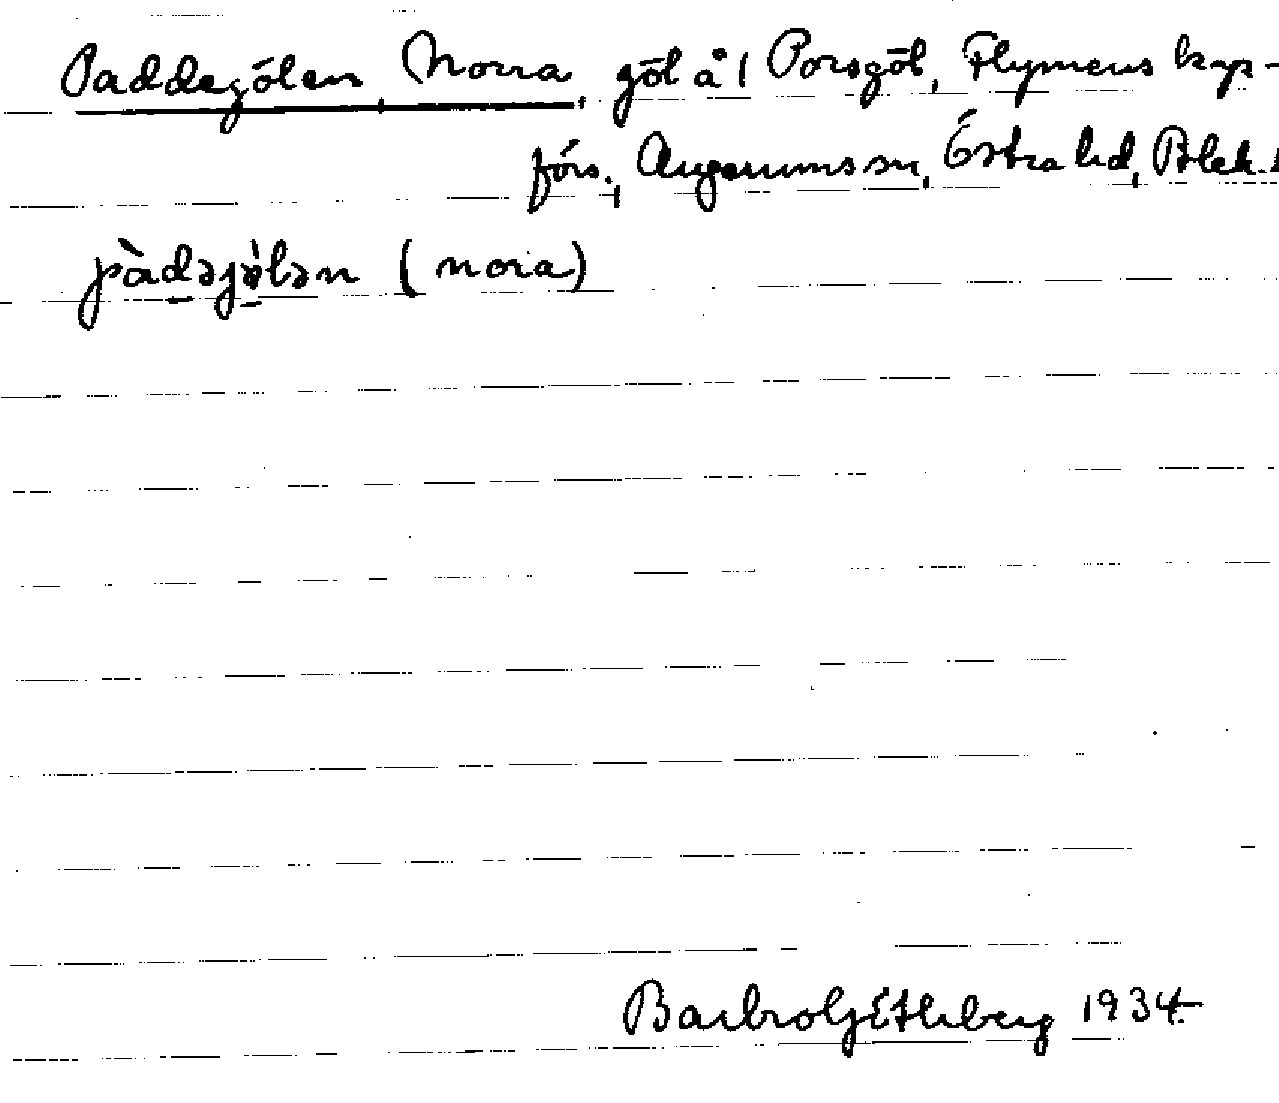 Paddegölen, Norra, göl å 1 Porsgöl, Flymens kap-
förs., Augerums sn, Östra hd, Blek. l
pàdəgǿlən (nora)
Barbro Götherberg 1934.